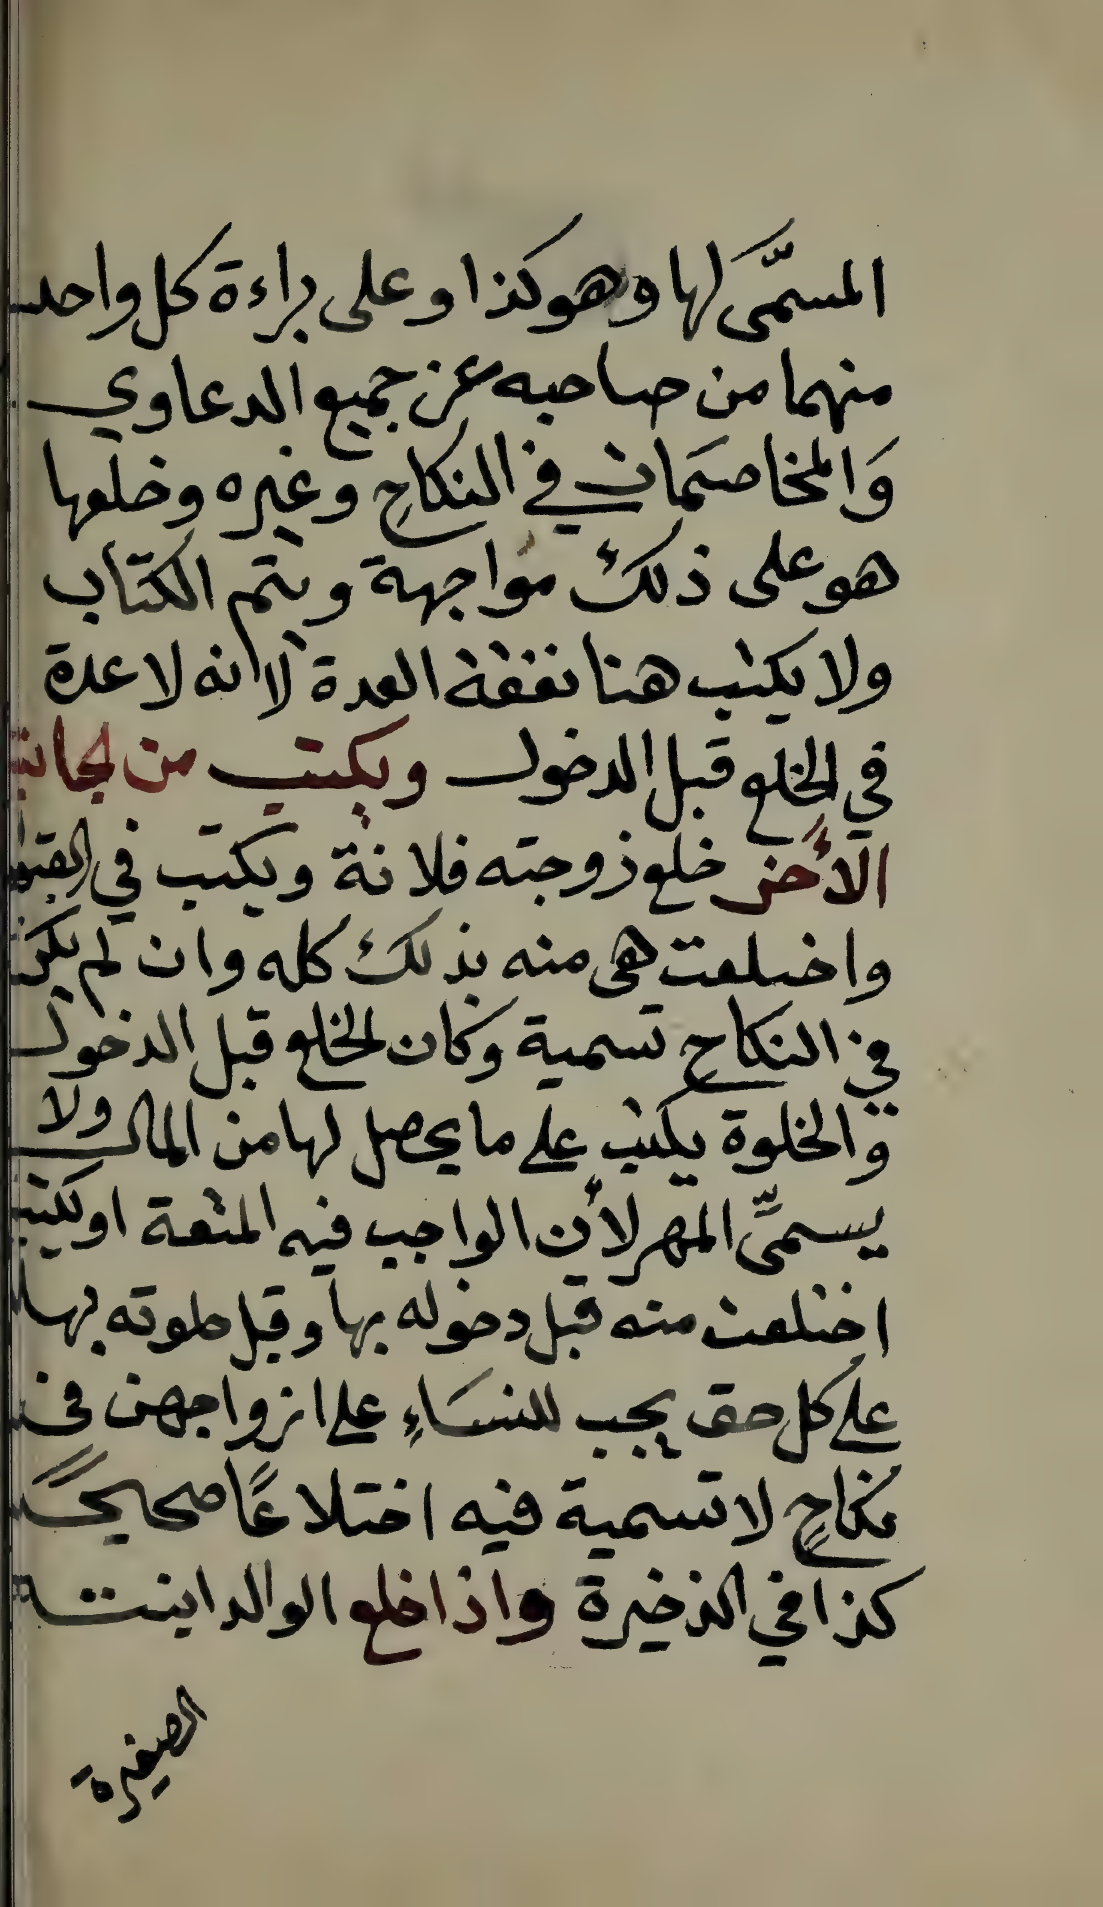 المسمَّى لها وهو كذا وعلى براءة كل واحد
منهما من صاحبه عن جميع الدعاوي
وَالمخاصَمات في النكاحِ وغيره وخلعها
هو على ذلك مواجهة ويتم الكتاب
ولا يكتب هنا نفقة العدة لانه لا عدة
في الخلع قبل الدخول ويكتب من لجانب
الآخر خلع زوجته فلانة ويكتب في القبول
واختلعت هى منه بذلك كله وان لم يكن
في النكاح تسمية وكان الخلع قبل الدخول
والخلوة يكتب على ما يحصل لها من المال ولا
يسمىّ المهر لأن الواجب فيه المتعة او يكتب
اختلعت منه قبل دخوله بها وقبل خلوته بها
على كل حق يجب للنسَاءِ على ازواجهن في
نكاحٍ لا تسمية فيه اختلاعًا صحيحًا
كذا في الذخيرة واذا خلع الوالد ابنته
الصغيرة